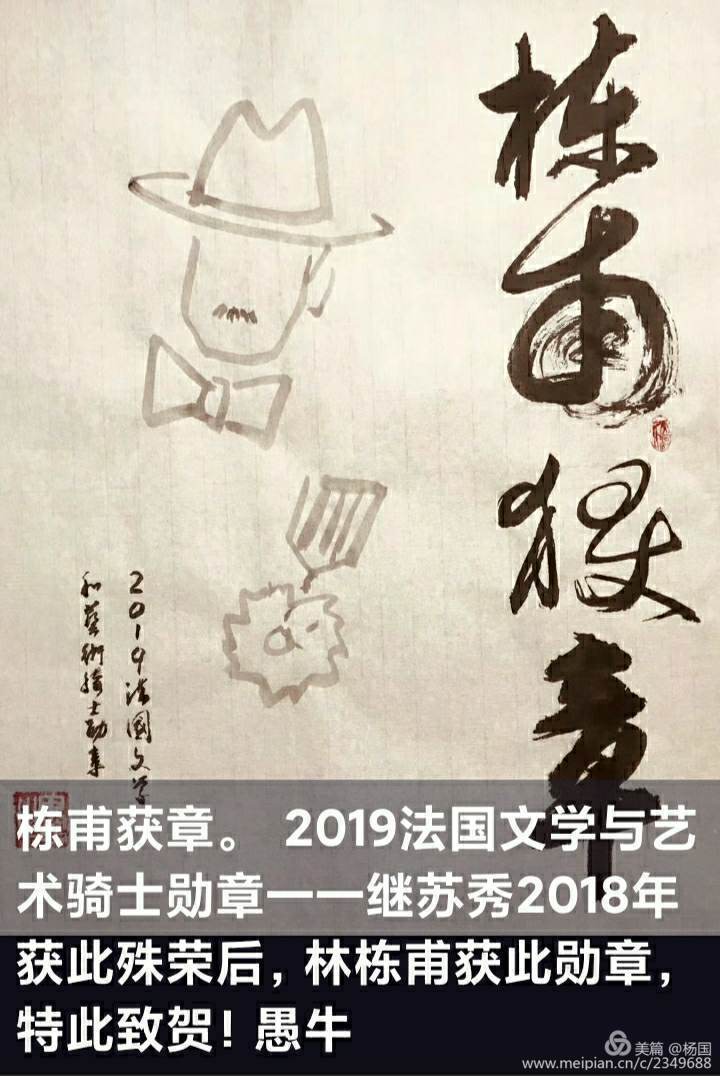 栋甫获章
2019法国文学
和藝術骑士勋章
栋甫获章。 2019法国文学与艺
术骑士勋章一一继苏秀2018年
获此殊荣后，林栋甫获此勋章，
特此致贺！愚牛
美篇 @杨国
www.meipian.cn/c/2349688